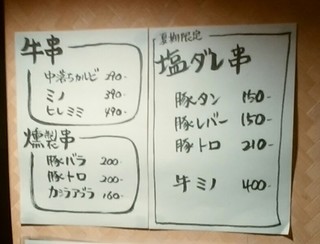 牛串
中落ちカルビ 290-
ミノ 390-
ヒレミミ 490-
燻製串
豚バラ 200-
豚トロ 200-
カシラアブラ 160-
夏期限定
塩ダレ串
豚タン 150-
豚レバー 150-
豚トロ 210-
牛ミノ 400-